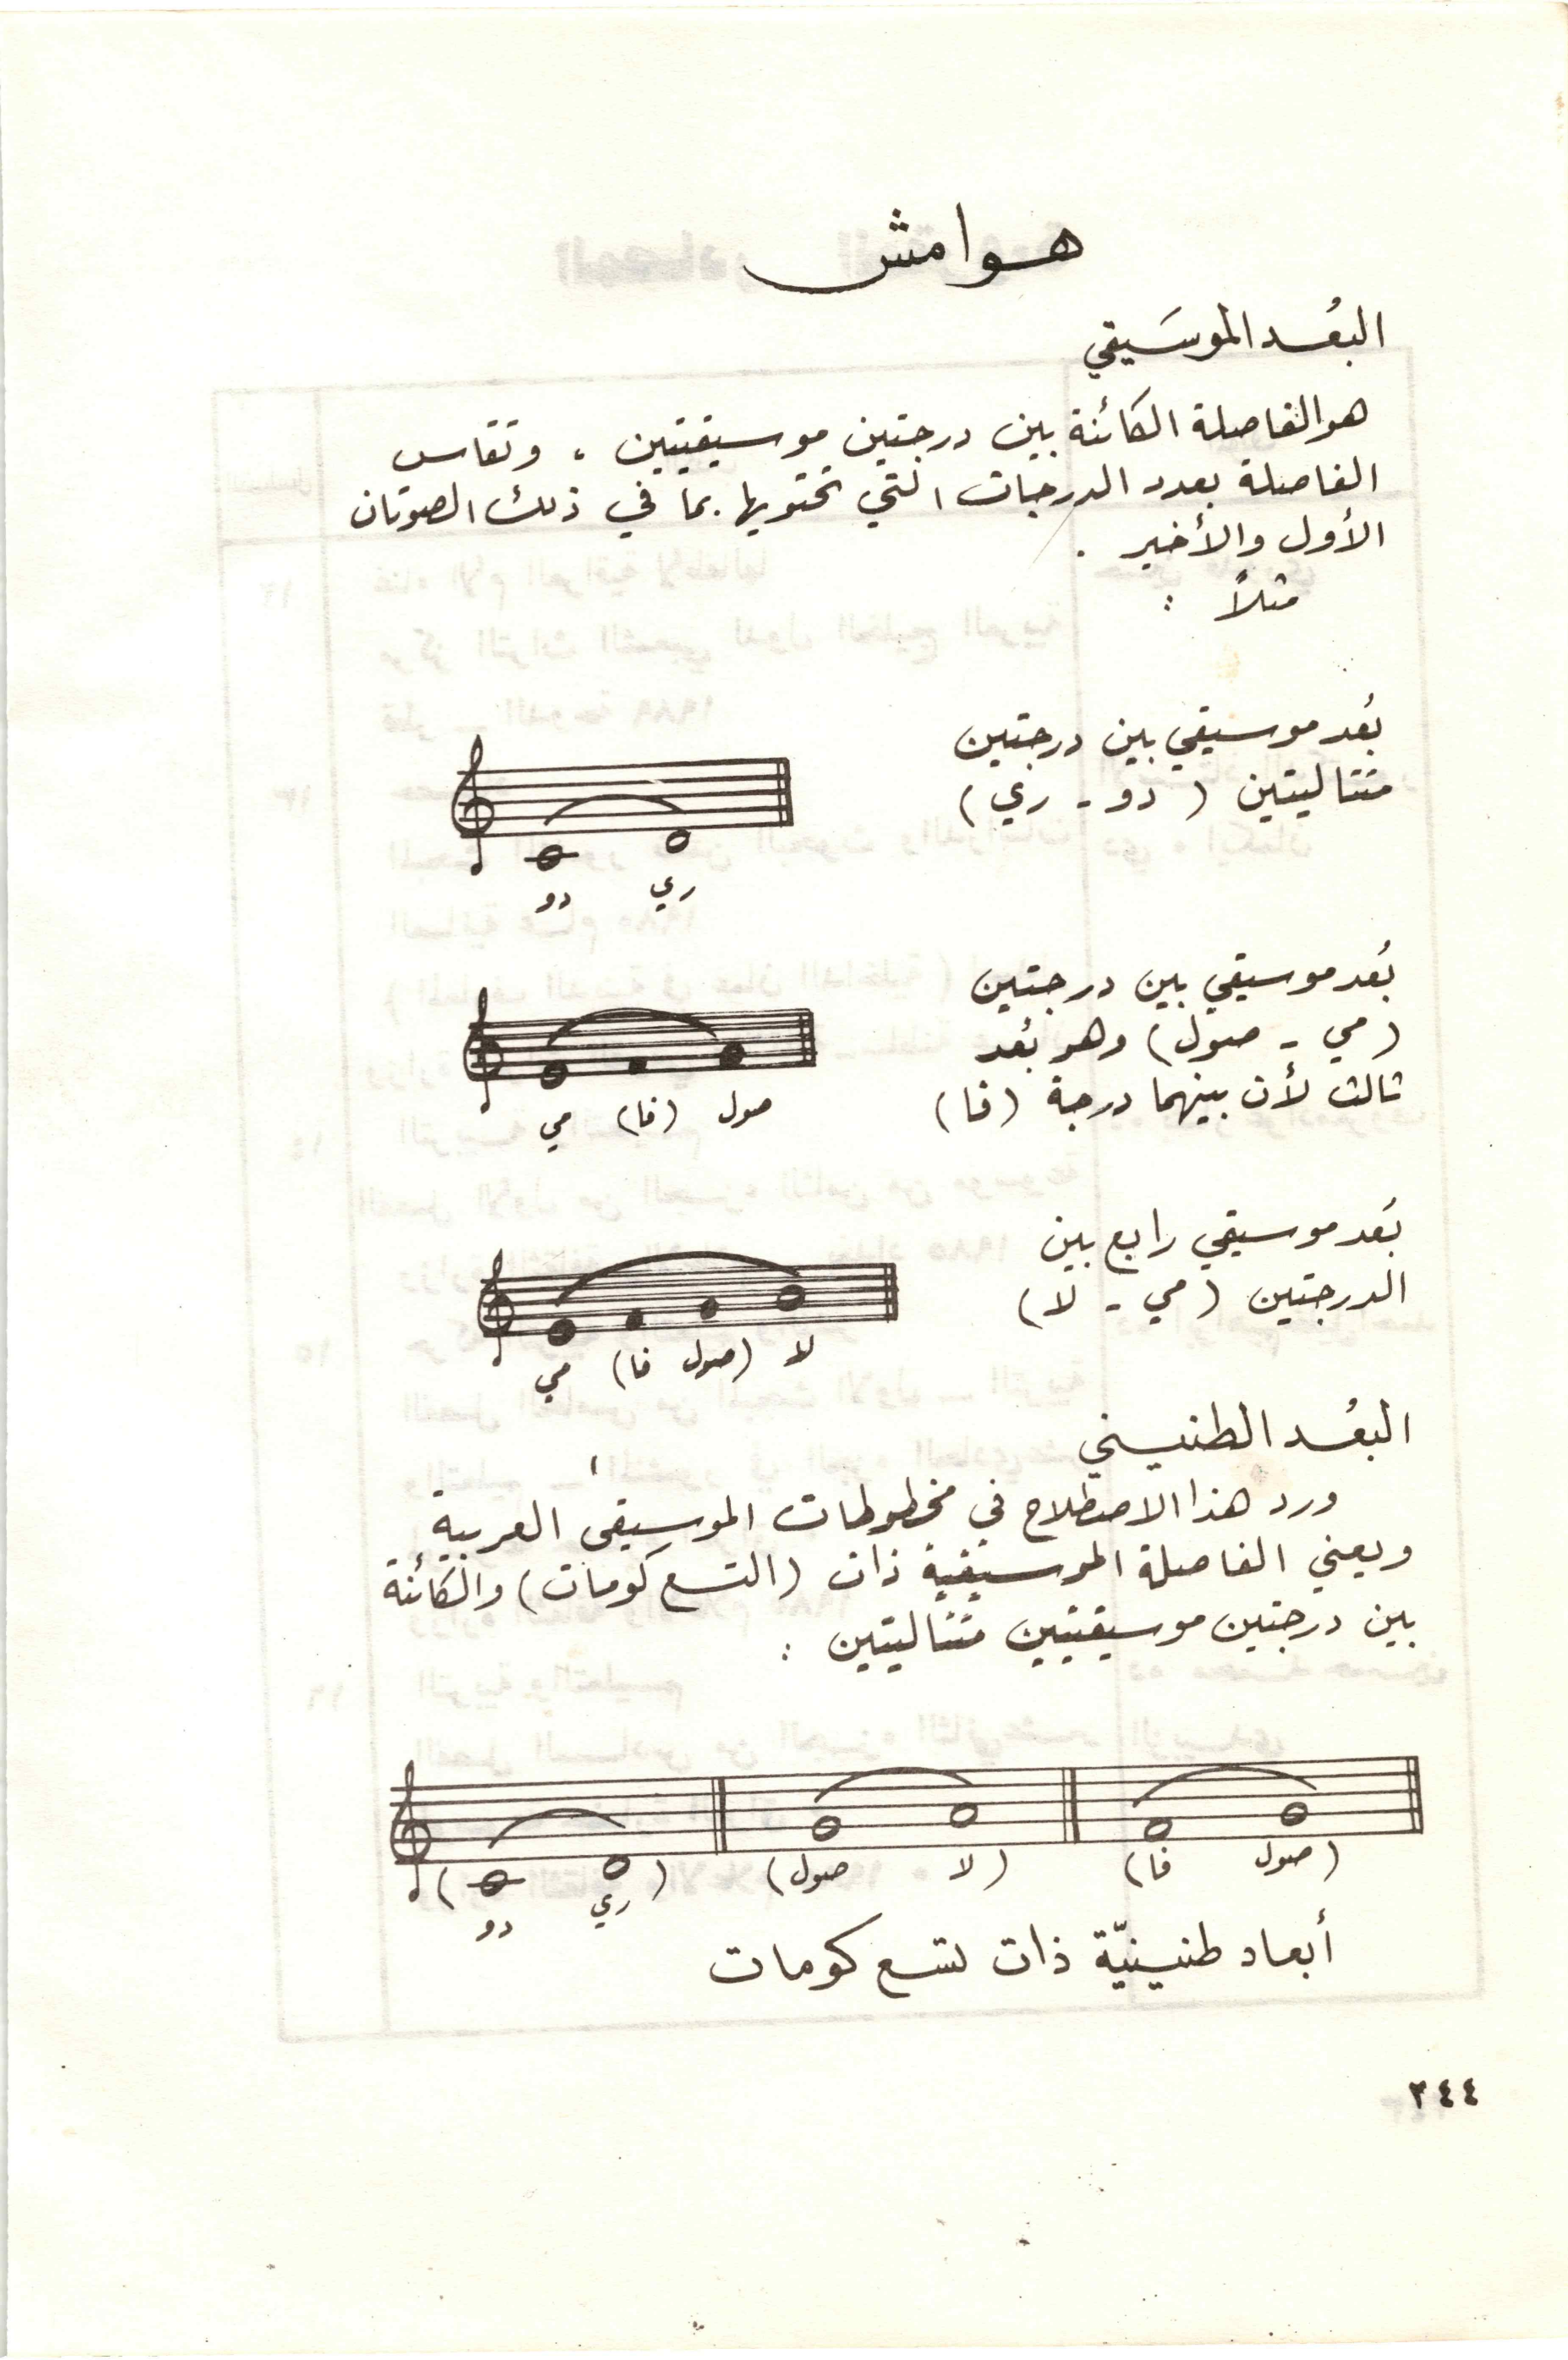 هوامش
البُعد الموسَيقي
هو الفاصلة الكائنة بين درجتين موسيقيتين ، وتقاس
الفاصلة بعدد الدرجات التي تحتويها . بما في ذلك الصوتان
الأول والأخير .
مثلاً :
بُعد موسيقي بين درجتين
متتاليتين ( دو - ري )
دو ري
بُعد موسيقي بين درجتين
( مي - صول ) وهو بُعد
ثالث لأن بينهما درجة ( فا )
مي ( فا ) صول
بُعد موسيقي رابع بين
الدرجتين ( مي - لا )
مي ( فا صول ) لا
البُعد الطنيني
ورد هذا الاصطلاح في مخطوطات الموسيقى العربية
ويعني الفاصلة الموسيقية ذات ( التسع كومات ) والكائنة
بين درجتين موسيقيتين متتاليتين :
( دو ري ) ( صول لا ) ( فا صول )
أبعاد طنينيّة ذات تسع كومات
٣٤٤